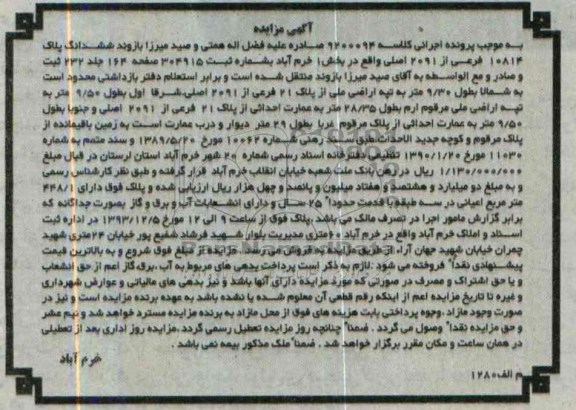 آگهی مزایده
به موجب پرونده اجرائی کلاسه ۹۲۰۰۰۹۴ صادره علیه فضل اله همتی و صید میرزا بازوند ششدانگ پلاک
۱۰۸۱۴ فرعی از ۲۰۹۱ اصلی واقع در بخش۱ خرم آباد بشماره ثبت ۳۰۴۹۱۵ صفحه ۱۶۴ جلد ۲۳۲ ثبت
و صادر و مع الواسطه به آقای صید میرزا بازوند منتقل شده است و برابر استعلام دفتر بازداشتی محدود است
به شمالا بطول ۹/۳۰ متر به تپه اراضی ملی از پلاک ۲۱ فرعی از ۲۰۹۱ اصلی.شرقا اول بطول ۹/۵۰ متر به
تپه اراضی ملی مرقوم ارم بطول ۲۸/۳۵ متر به عمارت احداثی از پلاک ۲۱ فرعی از ۲۰۹۱ اصلی و جنوبا بطول
۹/۵۰ متر به عمارت احداثی از پلاک مرقوم غربا بطول ۲۹ متر دیوار و درب عمارت است به زمین باقیمانده از
پلاک مرقوم و کوچه جدید الاحداث طبق سند رهنی شماره ۱۰۰۶۲ مورخ ۱۳۸۹/۵/۲۰ و سند متمم به شماره
۱۱۰۳۰ مورخ ۱۳۹۰/۱/۲۰ تنظیمی دفترخانه اسناد رسمی شماره ۲۰ شهر خرم آباد استان لرستان در قبال مبلغ
۱/۱۳۰/۰۰۰/۰۰۰ ریال در رهن بانک ملت شعبه خیابان انقلاب خرم آباد قرار گرفته و طبق نظر کارشناس رسمی
و به مبلغ دو میلیارد و هشتصد و هفتاد میلیون و پانصد و چهل هزار ریال ارزیابی شده و پلاک فوق دارای ۴۴۸/۱
متر مربع اعیانی در سه طبقه با قدمت حدودا" ۲۵ سال و دارای انشعابات آب و برق و گاز بصورت جداگانه که
برابر گزارش مامور اجرا در تصرف مالک می باشد .پلاک فوق از ساعت ۹ الی ۱۲ مورخ ۱۳۹۳/۱۲/۵ در اداره ثبت
اسناد و املاک خرم آباد واقع در خرم آباد ۶۰متری مدیریت بلوار شهید فرشاد شفیع پور خیابان ۲۴متری شهید
چمران خیابان شهید جهان آرا، از طریق مزایده به فروش می رسد . مزایده از مبلغ فوق شروع و به بالاترین قیمت
پیشنهادی نقدا" فروخته می شود .لازم به ذکر است پرداخت بدهی های مربوط به آب ،برق،گاز اعم از حق انشعاب
و یا حق اشتراک و مصرف در صورتی که مورد مزایده دارای آنها باشد و نیز بدهی های مالیاتی و عوارض شهرداری
و غیره تا تاریخ مزایده اعم از اینکه رقم قطعی آن معلوم شده یا نشده باشد به عهده برنده مزایده است و نیز در
صورت وجود مازاد ،وجوه پرداختی بابت هزینه های فوق از محل مازاد به برنده مزایده مسترد خواهد شد و نیم عشر
و حق مزایده نقدا" وصول می گردد . ضمنا" چنانچه روز مزایده تعطیل رسمی گردد ،مزایده روز اداری بعد از تعطیلی
در همان ساعت و مکان مقرر برگزار خواهد شد . ضمنا" ملک مذکور بیمه نمی باشد .
خرم آباد
م الف۱۲۸۰